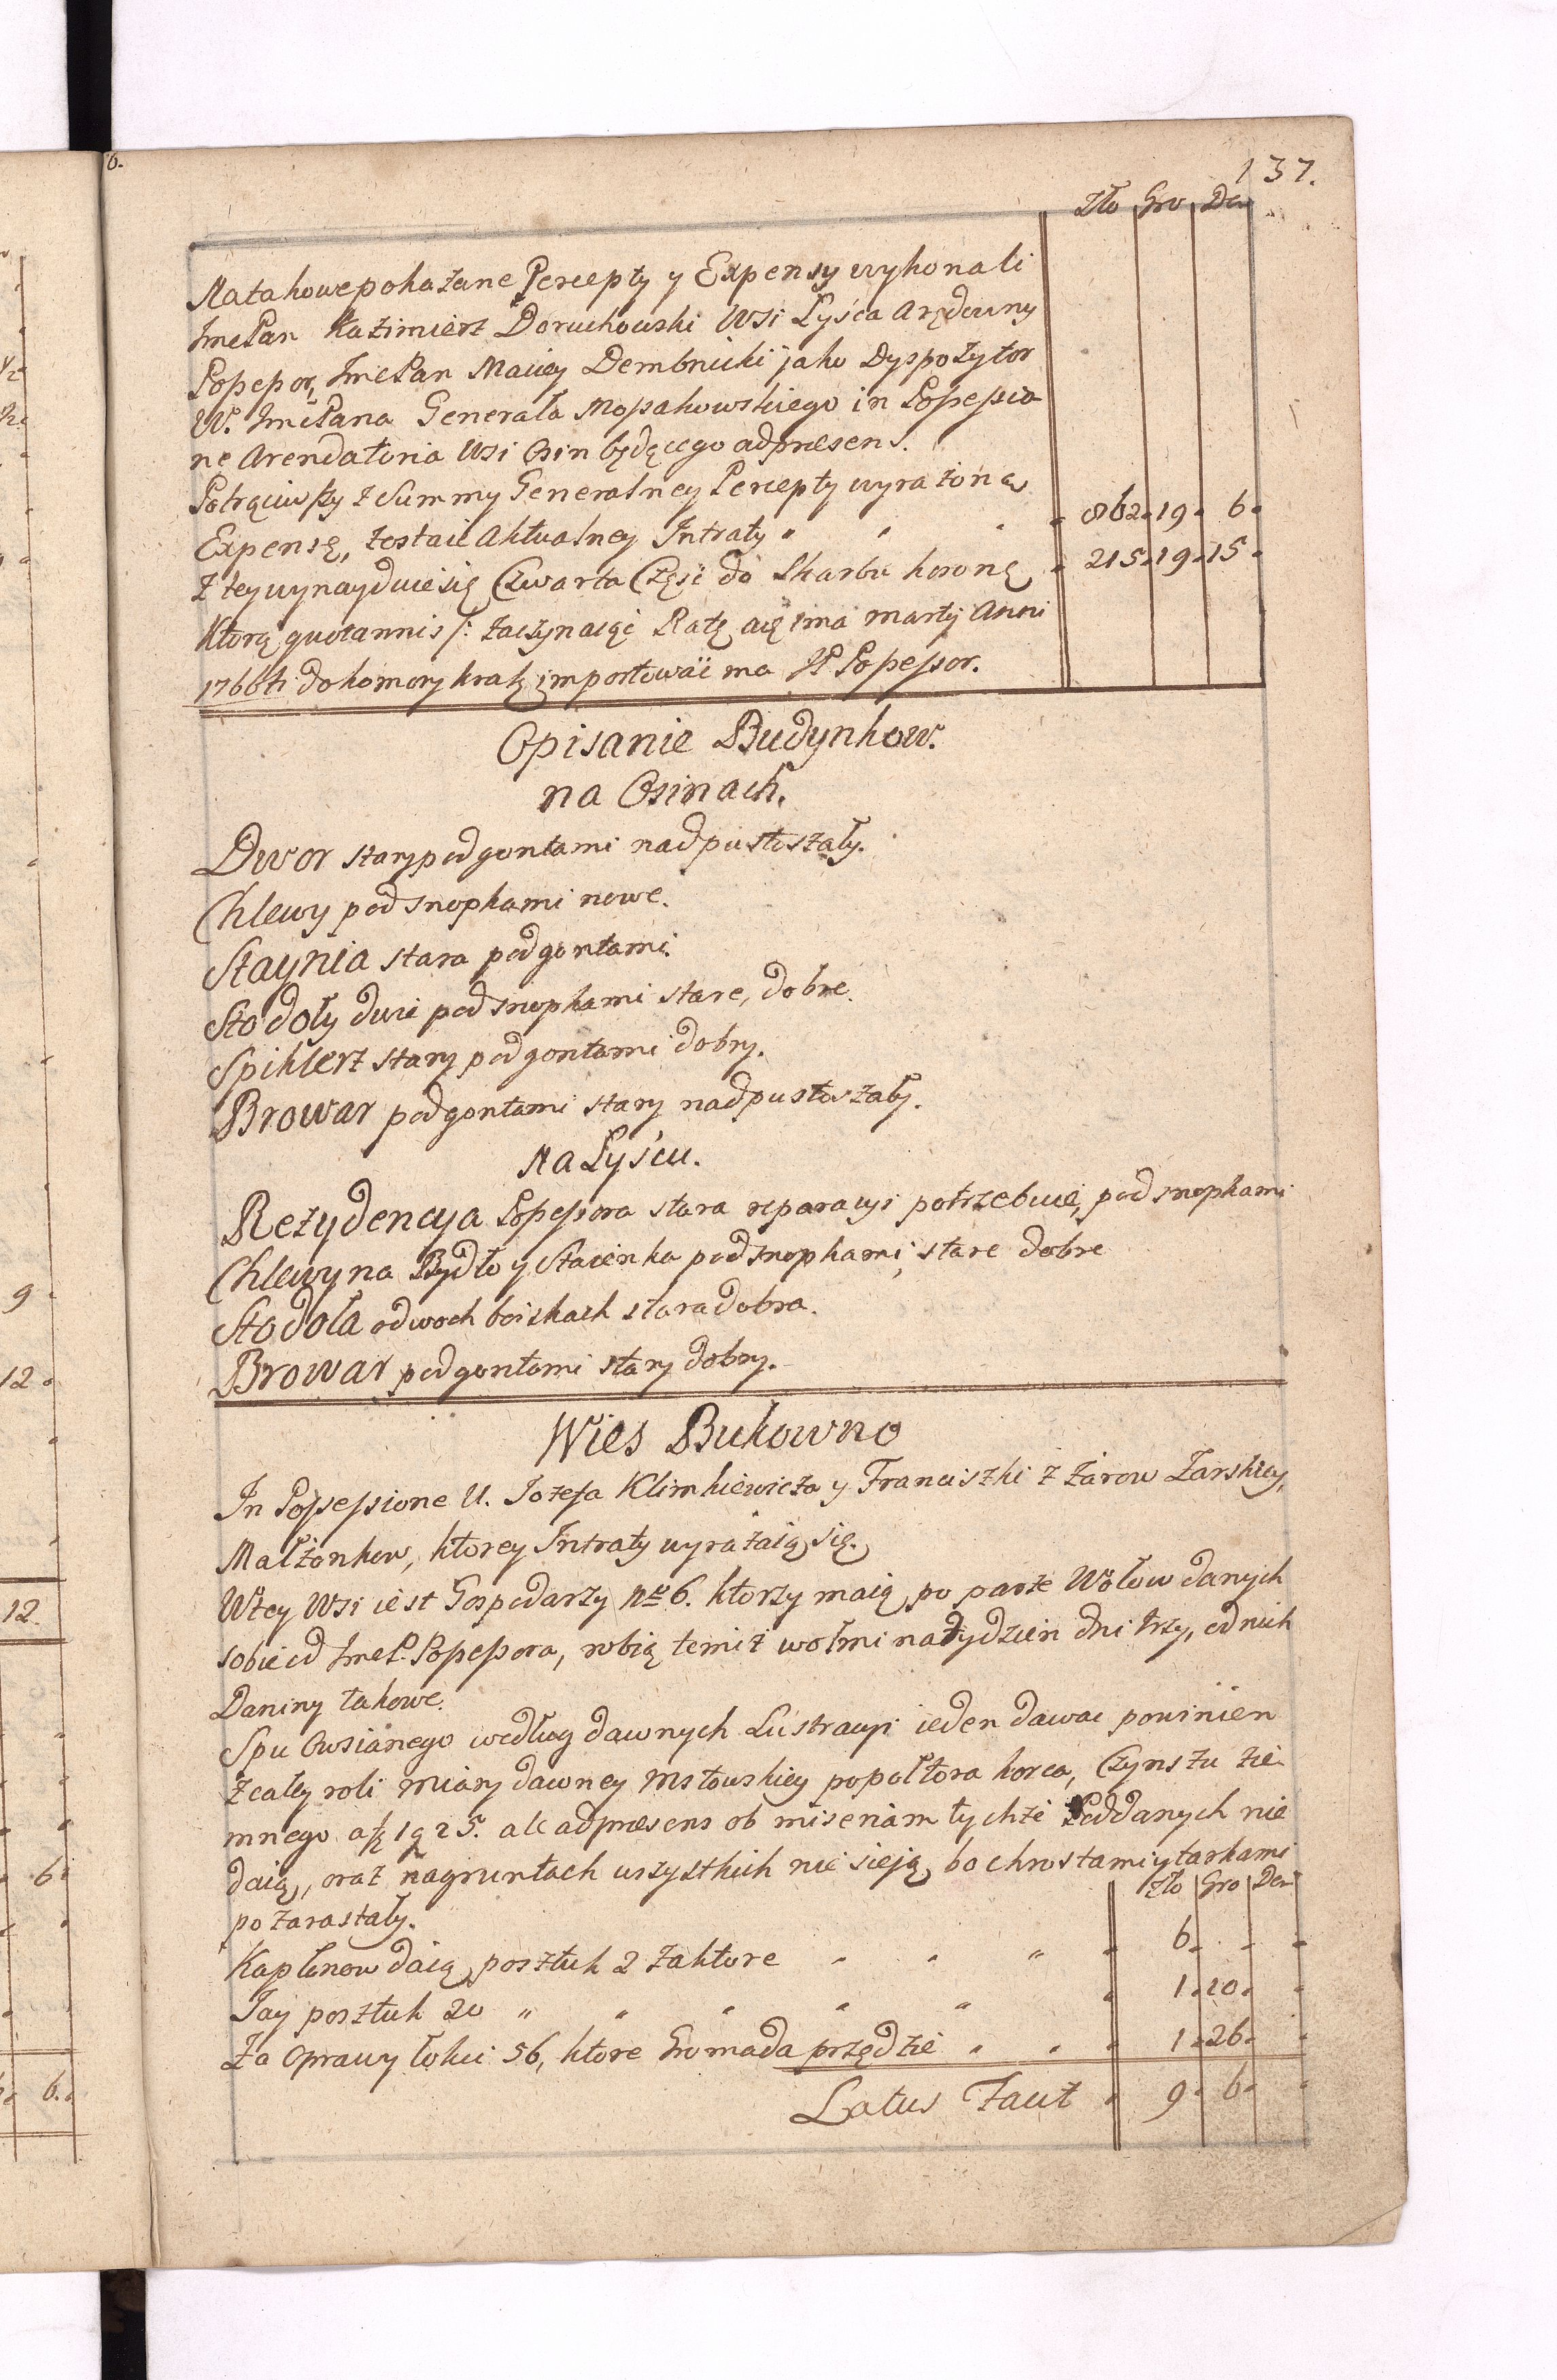 137.
Zło Gro De
Na takowe pokazane Percepty y Expensy wykonali
ImcPan Kazimierz Doruchowski Wsi Łyśca Arędowny
Possessor, ImcPan Maciey Dembnicki jako Dyspozytor
W. ImcPana Generała Mossakowskiego in Possessio
ne Arendatoria Wsi Osin będącego ad præsens.
Potrąciwszy z Summy Generalney Percepty wyrażoną
Expensę, zostaie Aktualney Intraty " " " 862. 19. 6.
Z tey wynayduie się Czwarta Część do Skarbu koronę 215. 19. 15.
Ktorą quotannis /: zaczynaiąć Ratę a 1ma martÿ Anni
1766ti do komory Kralę importować ma JP Possessor.
Opisanie Budynkow.
na Osinach.
Dwor stary pod gontami nadpustoszały.
Chlewy pod snopkami nowe.
Staynia stara pod gontami.
Stodoły dwie pod snopkami stare, dobre.
Spiklerz stary pod gontami dobry.
Browar pod gontami stary nadpustoszały.
Na Łyścu.
Rezydencya Possessora stara reparacyi potrzebuie, pod snopkami
Chlewy na Bydło y Staienka pod snopkami, stare dobre
Stodoła o dwoch boiskach stara dobra.
Browar pod gontami stary dobry.
Wies Bukowno
In Possessione U. Jozefa Klimkiewicza y Franciszki z Żarow Żarskiey,
Małżonkow, ktorey Intraty wyrażaią się.
W tey Wsi iest Gospodarzy Nro 6. ktorzy maią po parze Wołow danych
sobie od ImcP. Possessora, robią temiż wołmi na tydzien dni trzy, od nich
Daniny takowe.
Spu Owsianego według dawnych Lustracyi ieden dawać powinien
z całey roli miary dawney Mstowskiey po połtora korca, Czynszu zie
mnego a 1 g 25. ale ad præsens ob miseriam tychże Poddanych nie
daią, oraz na gruntach wszystkich nie sieją, bo chrostami y tarkami
pozarastały. Zło Gro Den
Kapłonow daią posztuk 2 za ktore " " " 6. . .
Jay posztuk 20 " " " " " 1. 10.
Za Oprawy łokci 56, ktore Gromada przędzie " " 1. 26.
Latus Facit 9. 6.
9
12.
12.
6
6.